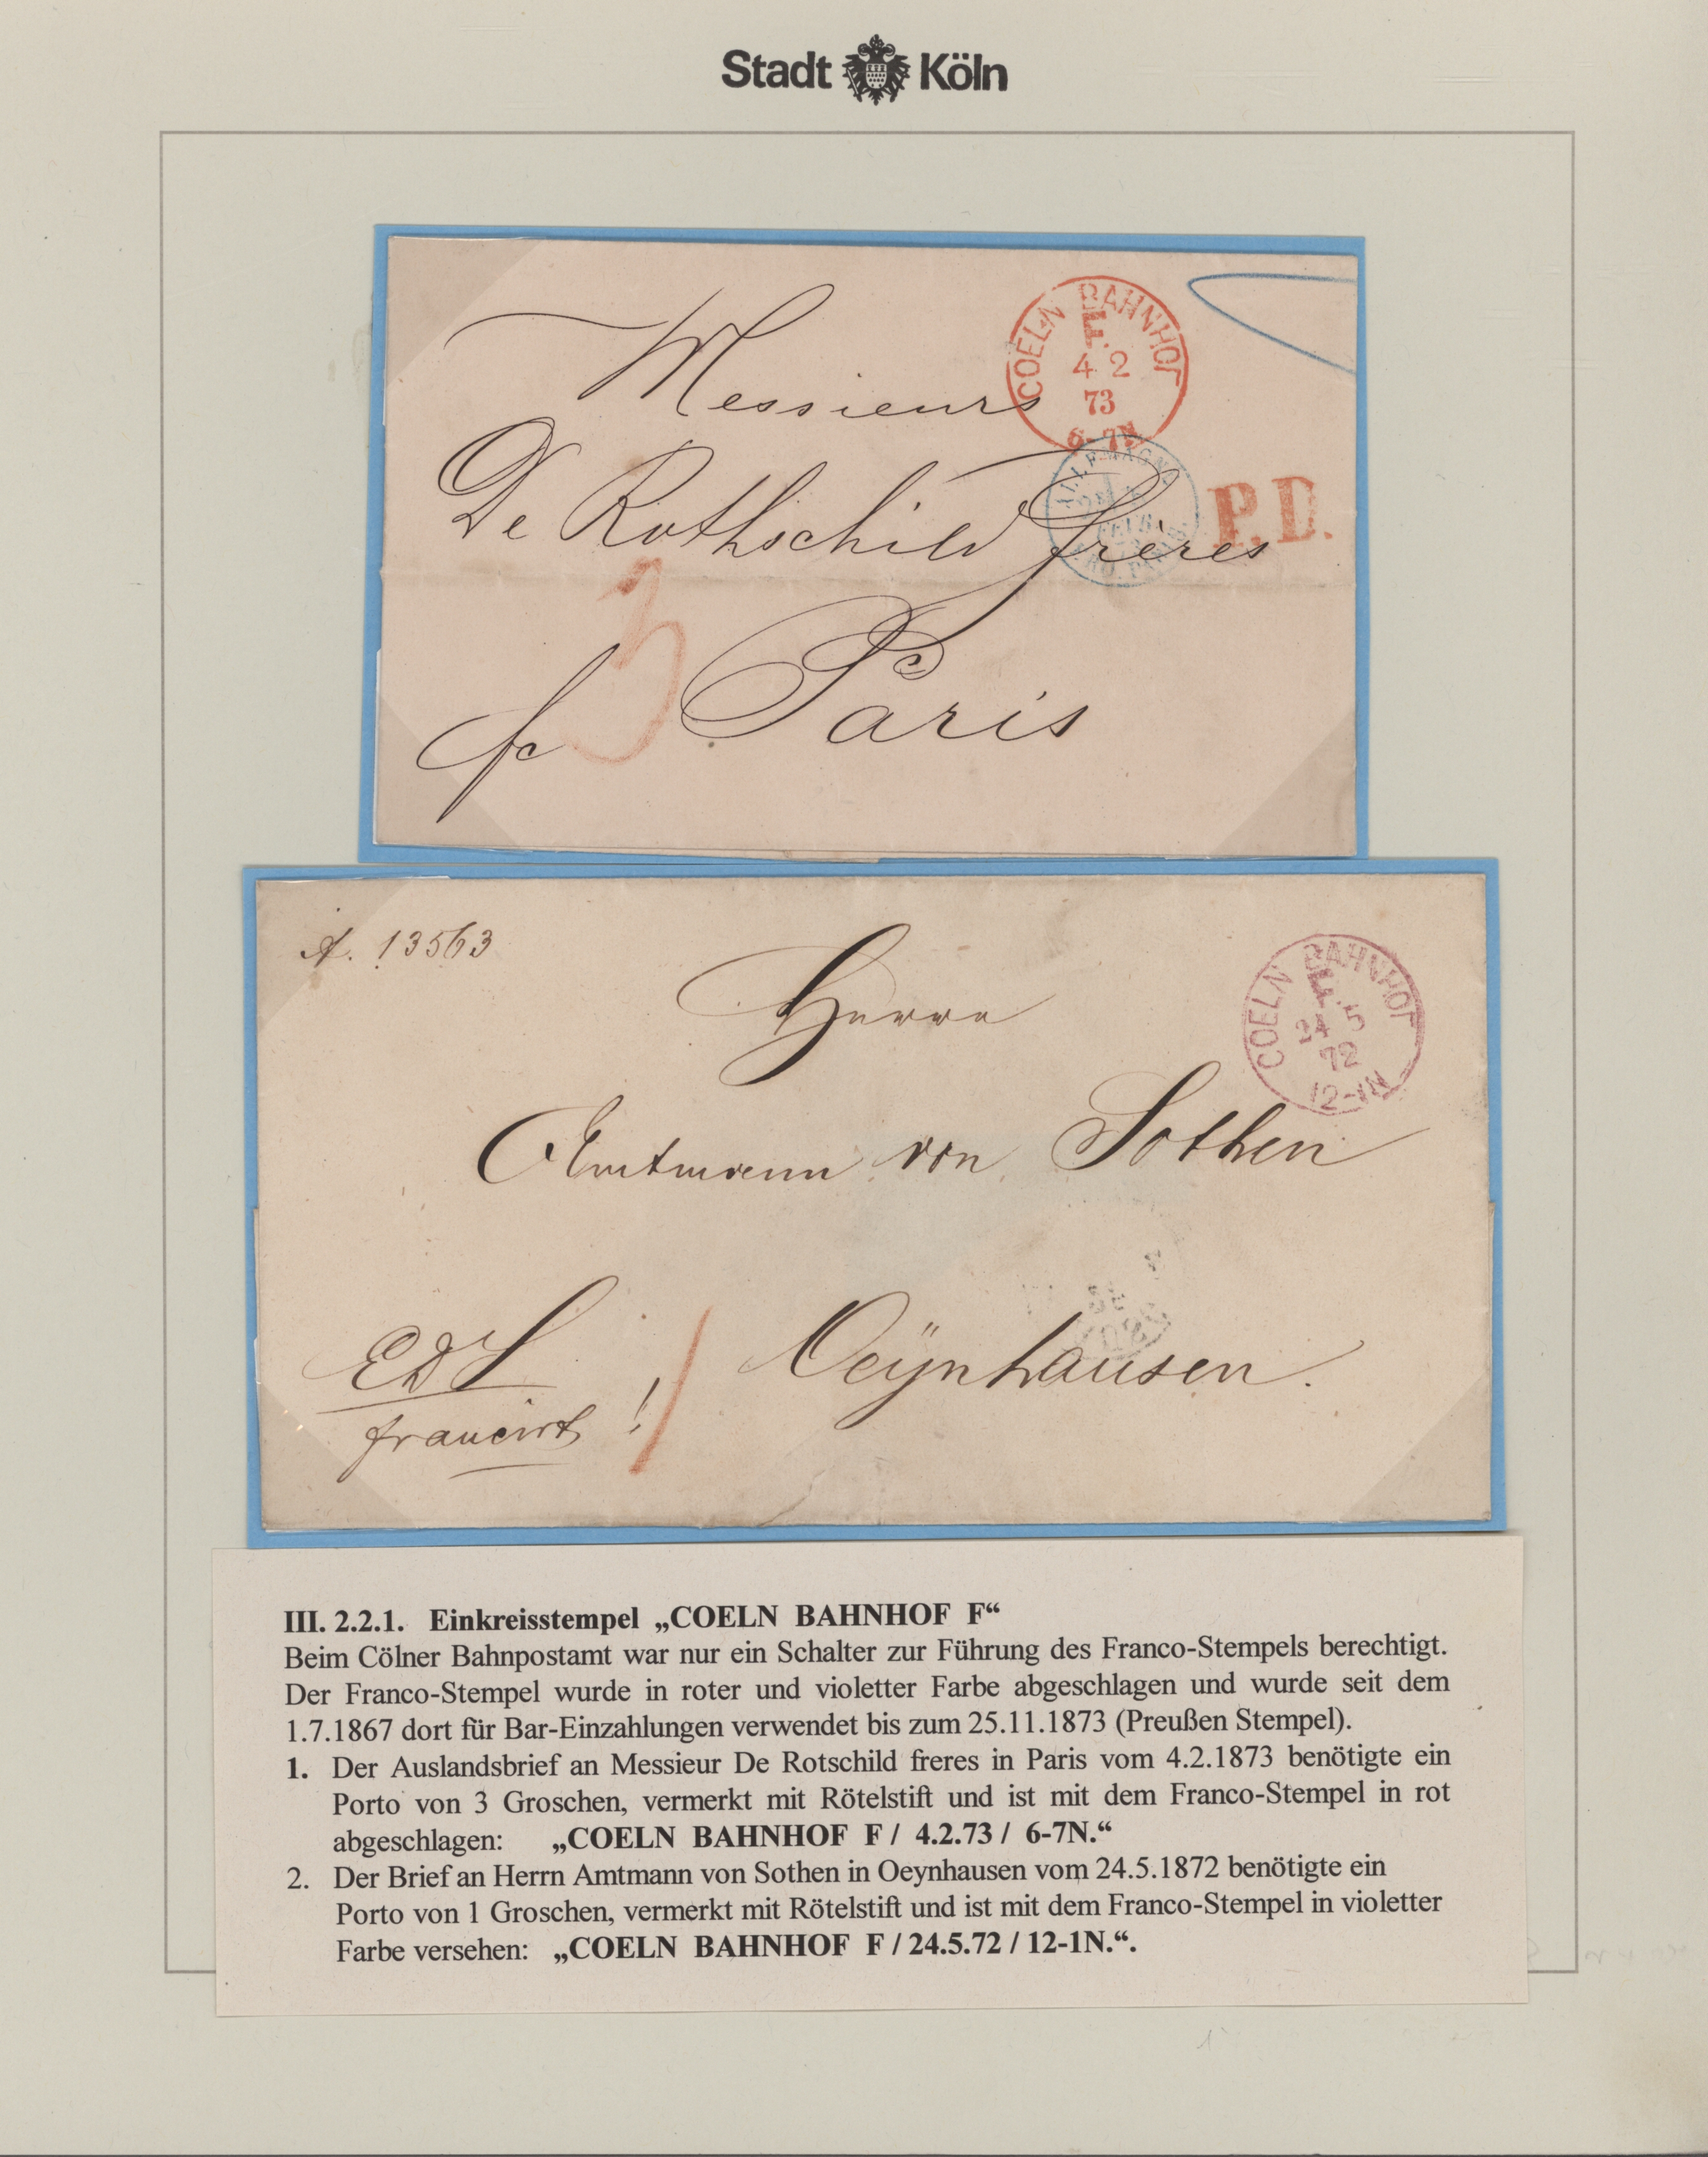 Stadt Köln
COELN BAHNHOF
F.
4 2
73
6-7N
Messieurs
De Rothschild freres
P.D.
3
fc Paris
A. 13563
COELN BAHNHOF
F.
24 5
72
12-1N
Herrn
Amtmann von Sothen
Oeÿnhausen.
francirt !
III. 2.2.1. Einkreisstempel „COELN BAHNHOF F“
Beim Cölner Bahnpostamt war nur ein Schalter zur Führung des Franco-Stempels berechtigt.
Der Franco-Stempel wurde in roter und violetter Farbe abgeschlagen und wurde seit dem
1.7.1867 dort für Bar-Einzahlungen verwendet bis zum 25.11.1873 (Preußen Stempel).
1. Der Auslandsbrief an Messieur De Rotschild freres in Paris vom 4.2.1873 benötigte ein
Porto von 3 Groschen, vermerkt mit Rötelstift und ist mit dem Franco-Stempel in rot
abgeschlagen: „COELN BAHNHOF F / 4.2.73 / 6-7N.“
2. Der Brief an Herrn Amtmann von Sothen in Oeynhausen vom 24.5.1872 benötigte ein
Porto von 1 Groschen, vermerkt mit Rötelstift und ist mit dem Franco-Stempel in violetter
Farbe versehen: „COELN BAHNHOF F / 24.5.72 / 12-1N.“.